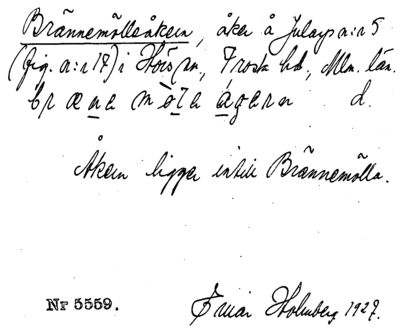 Brännemölleåkern, åker å Julaps n:r 5
(fig. n:r 17) i Hörs sn, Frosta hd, Mlm. län.
bræne möla ågærn d.
Åkern ligger intill Brännemölla.
Nr 5559. Einar Holmberg 1927.